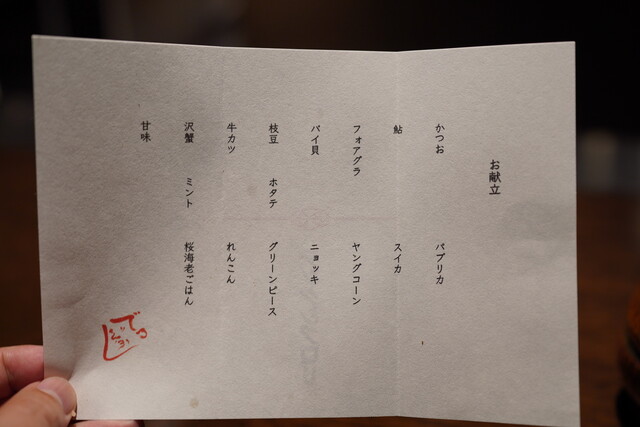 お献立
かつお　パプリカ
鮎　スイカ
フォアグラ　ヤングコーン
バイ貝　ニョッキ
枝豆　ホタテ　グリーンピース
牛カツ　れんこん
沢蟹　ミント　桜海老ごはん
甘味